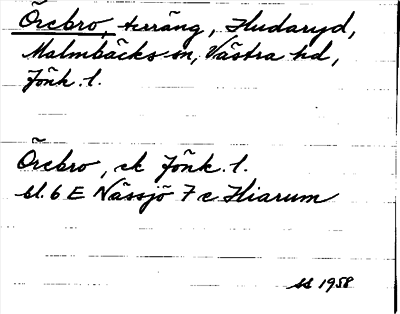 Örebro, terräng, Hudaryd,
Malmbäcks sn, Västra hd,
Jönk. l.
Örebro, ek Jönk. l.
bl. 6 E Nässjö 7 c Hiarum
1958